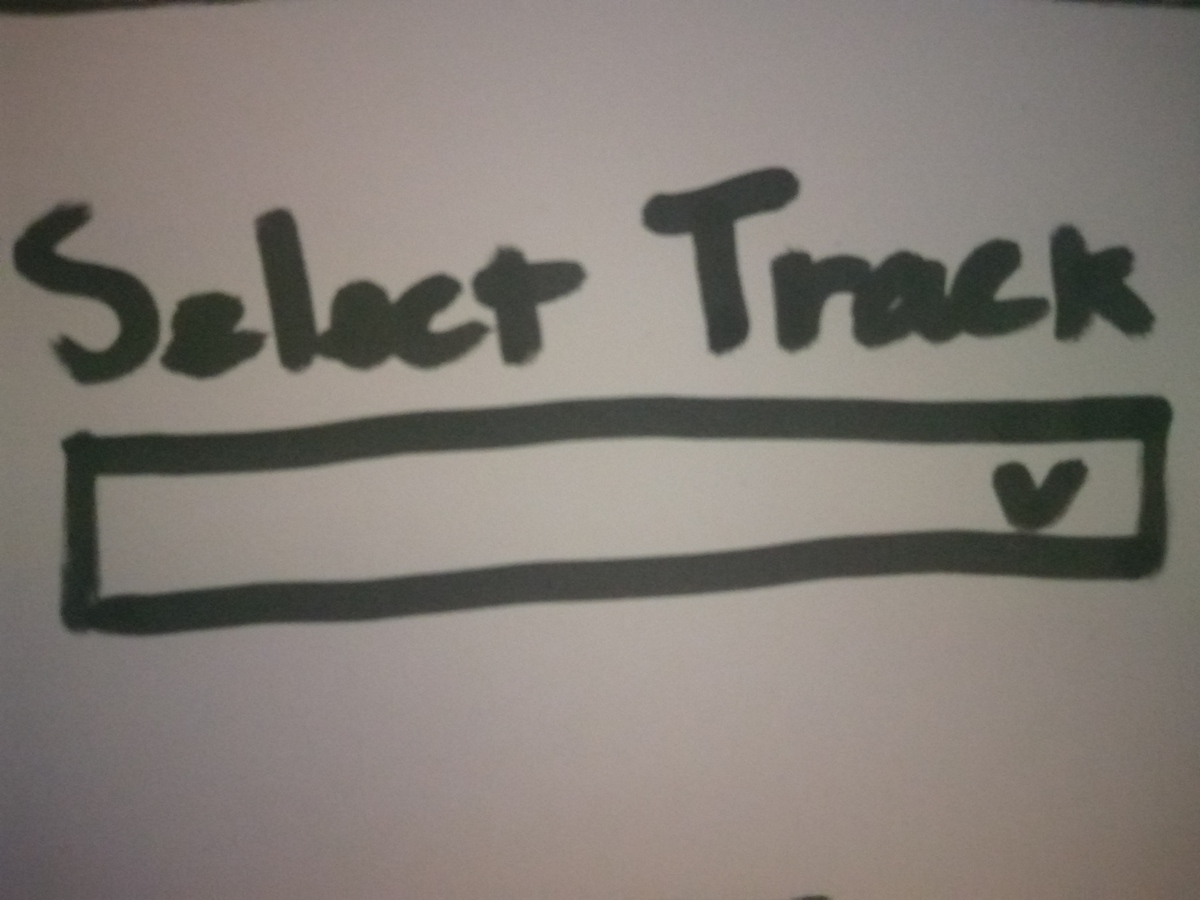 Select Track